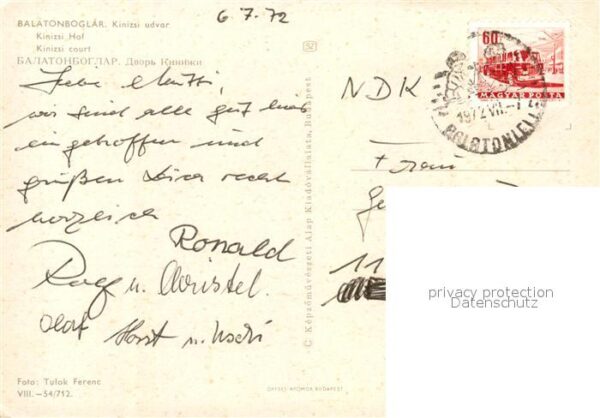 6.7.72
BALATONBOGLÁR. Kinizsi udvar
Kinizsi Hof
Kinizsi court
БАЛАТОНБОГЛАР. Дворь Кинижи
Liebe Mutti,
wir sind alle gut hier
eingetroffen und
grüßen Dich recht
herzlich
Ronald
Rolf u. Christel.
Olaf Horst u. Uschi
Foto: Tulok Ferenc
VIII.—54/712.
52
C Képzőművészeti Alap Kiadóvállalata, Budapest
OFFSET-NYOMDA BUDAPEST
60
MAGYAR POSTA
1972 VII.-7
BALATONLELLE
NDK
Frau
11
privacy protection
Datenschutz